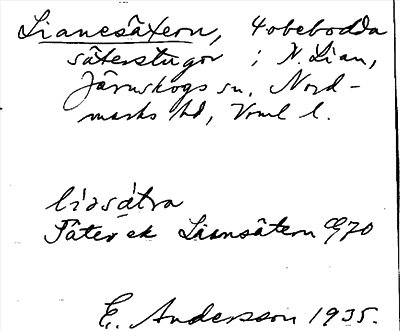 Lianesätern, 4 obebodda
säterstugor i N. Lian,
Järnskogs sn, Nord-
marks hd, Vrml l.
liasátra
Säter ek Liansätern 970
E. Andersson 1935.